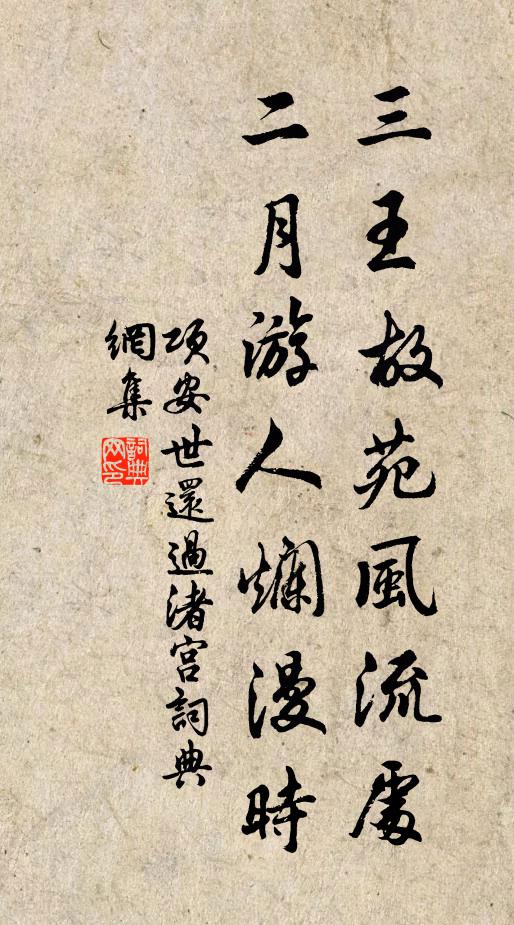 三王故苑風流處
二月游人爛漫時
項安世還過渚宮詞典
網集
詞典
网印